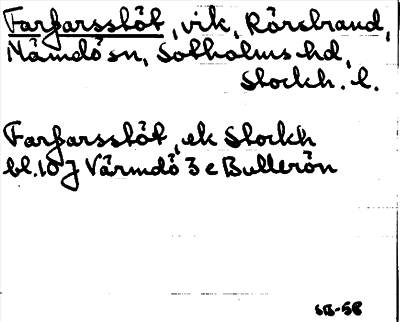 Farfarsslöt, vik, Rörsbrand,
Nämdö sn, Sotholms hd,
Stockh. l.
Farfarsslöt, ek Stockh
bl. 10 J Värmdö 3 c Bullerön
SB-58